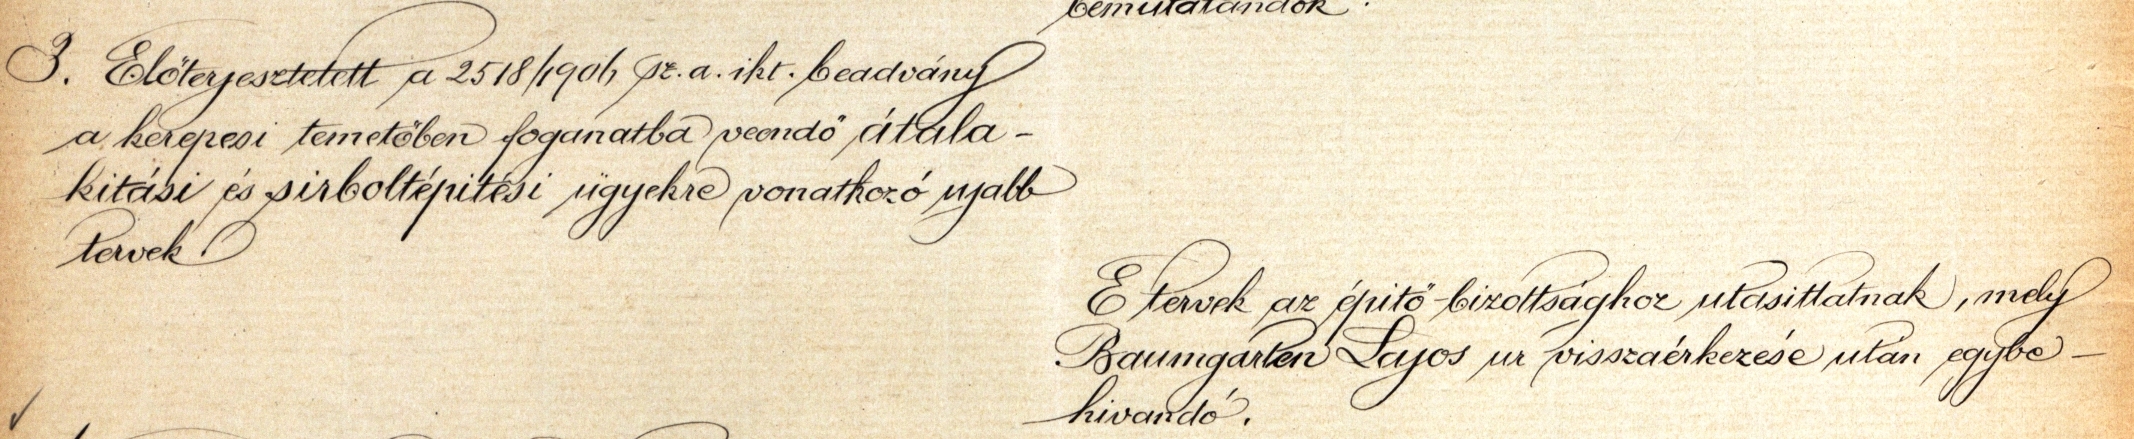 bemutatandók.
3. Előterjesztetett a 2518/1904 sz. a. ikt. beadvány
a kerepesi temetőben foganatba veendő átala-
kitási és sirboltépitési ügyekre vonatkozó ujabb
tervek.
E tervek az épitő-bizottsághoz utasittatnak, mely
Baumgarten Lajos ur visszaérkezése után egybe-
hivandó.